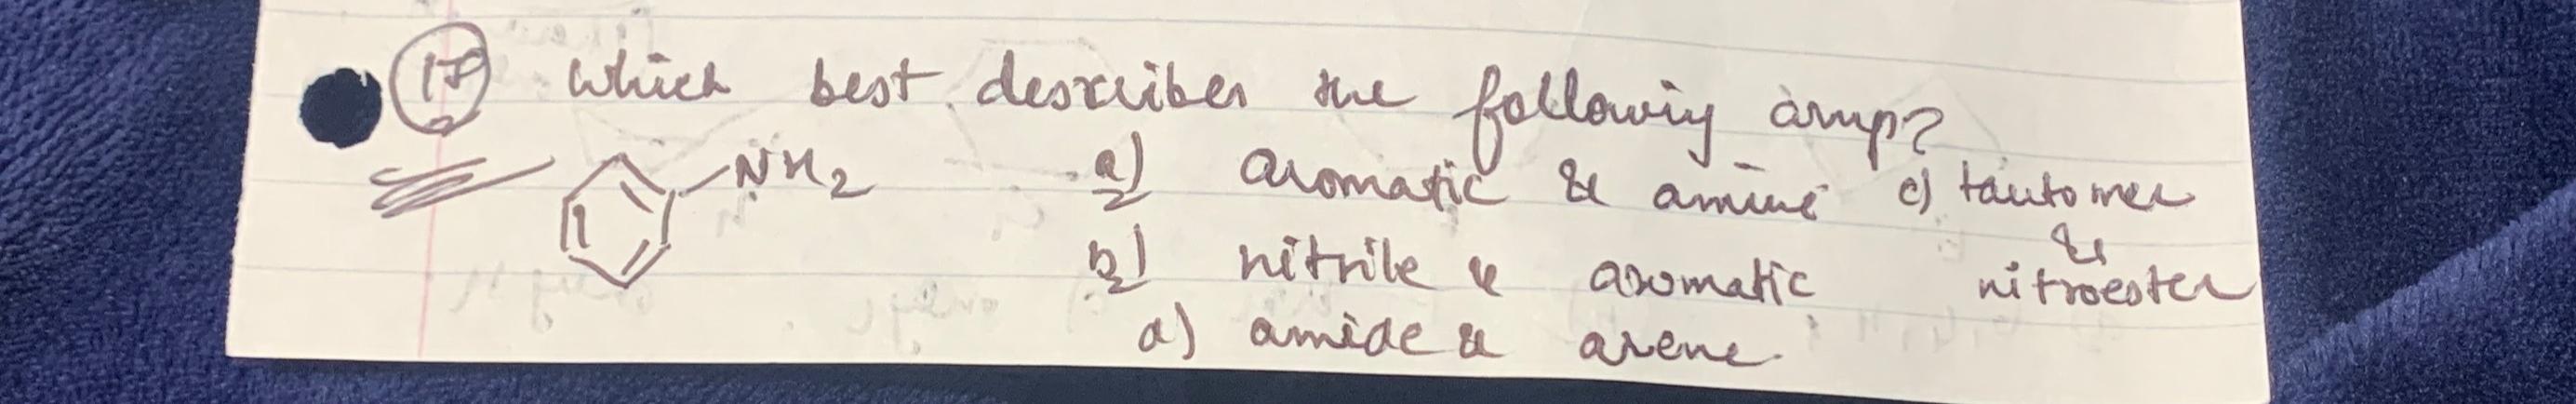 17 Which best describes the following cmp?
NH2 a) aromatic & amine c) tautomer
&
b) nitrile & aromatic nitroester
d) amide & arene